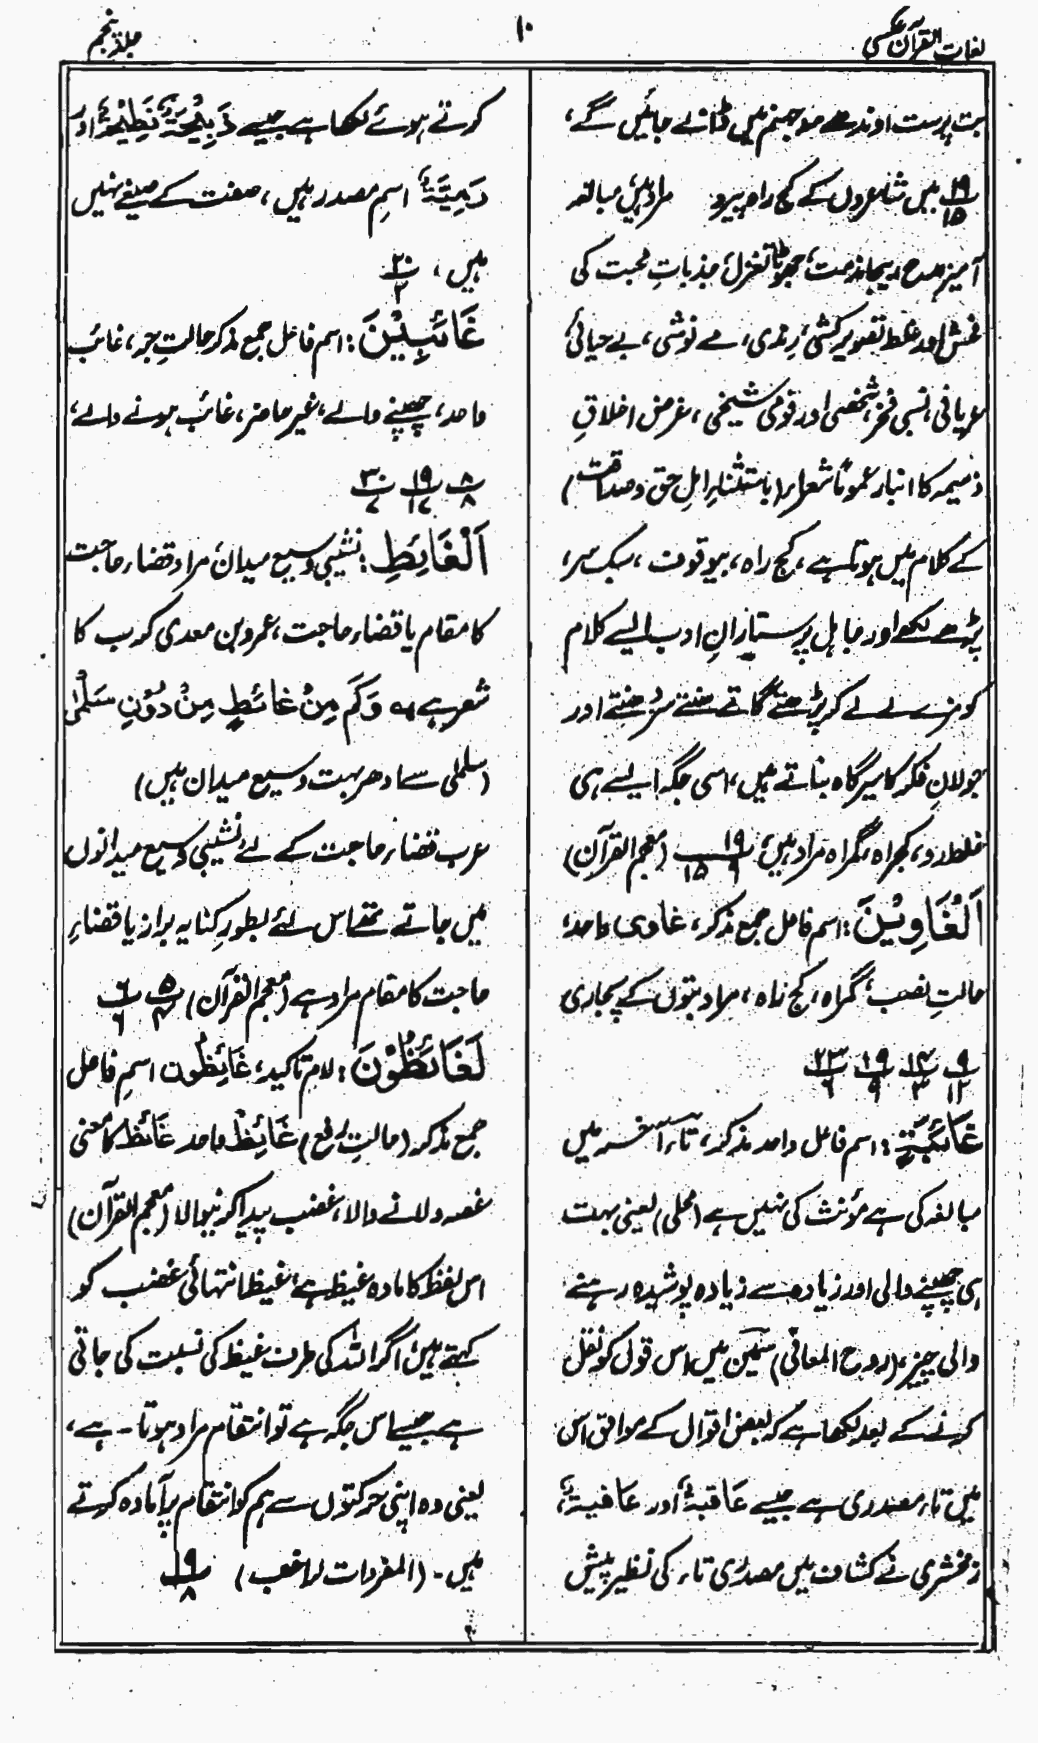 لغات القرآن عکسی
۱۰
جلد پنجم
بت پرست اوندھے منہ جہنم میں ڈالے جائیں گے،
۱۹/۱۵ میں شاعروں کے کج راہ پیرو مراد ہیں مبالغہ
آمیز مدح، بیجا مذمت، جھوٹا تغزل، جذباتِ محبت کی
فحش اور غلط تصویر کشی، رندی، مے نوشی، بے حیائی،
عریانی، نسبی فخر، شخصی اور قومی شیخی، غرض اخلاقِ
ذمیمہ کا انبار عموماً شعراء (باستثناءِ اہلِ حق و صداقت)
کے کلام میں ہوتا ہے، کج راہ، بیوقوف، سبک سر،
پڑھے لکھے اور جاہل پرستارانِ ادب ایسے کلام
کو مزے لے لے کر پڑھتے گاتے سنتے سر دھنتے اور
جولانِ فکر کا سیرگاہ بناتے ہیں، اسی جگہ ایسے ہی
غلط رو، کجراہ، گمراہ مراد ہیں، ۱۹/۶ ۱۵ (معجم القرآن)
اَلْغَاوِیْنَ: اسم فاعل جمع مذکر، غاوی واحد،
حالتِ نصب، گمراہ، کج راہ، مراد بتوں کے پجاری
۹/۱۲ ۱۴/۳ ۱۹/۹ ۲۳/۶
غَائِبَۃٍ: اسم فاعل واحد مذکر، تاء آخر میں
مبالغہ کی ہے مؤنث کی نہیں ہے (محلی) یعنی بہت
ہی چھپنے والی اور زیادہ سے زیادہ پوشیدہ رہنے
والی چیز، (روح المعانی) سمین میں اس قول کو نقل
کرنے کے بعد لکھا ہے کہ بعض اقوال کے موافق اس
میں تاء مصدری ہے جیسے عاقبۃٌ اور عافیۃٌ،
زمخشری نے کشاف میں مصدری تاء کی نظیر پیش
کرتے ہوئے لکھا ہے جیسے ذَبِیْحَۃٌ نَطِیْحَۃٌ اور
رَمِیَّۃٌ اسمِ مصدر ہیں، صفت کے صیغے نہیں
ہیں، ۲۰/۲
غَائِبِیْنَ: اسم فاعل جمع مذکر حالتِ جر، غائب
واحد، چھپنے والے، غیر حاضر، غائب ہونے والے،
۸/۸ ۱۹/۱۷ ۳۰/۷
اَلْغَائِطِ: نشیبی وسیع میدان، مراد قضاء حاجت
کا مقام یا قضاء حاجت، عمرو بن معدی کرب کا
شعر ہے ؎ وَکَم مِنْ غائطٍ مِنْ دُوْنِ سَلْمٰی
(سلمٰی سے ادھر بہت وسیع میدان ہیں)
عرب قضاء حاجت کے لئے نشیبی وسیع میدانوں
میں جاتے تھے اس لئے بطورِ کنایہ براز یا قضاءِ
حاجت کا مقام مراد ہے (معجم القرآن) ۵/۴ ۶/۶
لَغَائِظُوْنَ: لامِ تاکید، غَائِظُون اسمِ فاعل
جمع مذکر (حالتِ رفع) غَائِظٌ واحد غَائِظٌ کا معنی
غصہ دلانے والا، غضب پیدا کرنیوالا (معجم القرآن)
اس لفظ کا مادہ غیظ ہے، غیظ انتہائی غضب کو
کہتے ہیں، اگر اللہ کی طرف غیظ کی نسبت کی جاتی
ہے جیسے اس جگہ ہے تو انتقام مراد ہوتا۔ ہے،
یعنی وہ اپنی حرکتوں سے ہم کو انتقام پر آمادہ کرتے
ہیں۔ (المفردات للراغب) ۱۹/۸